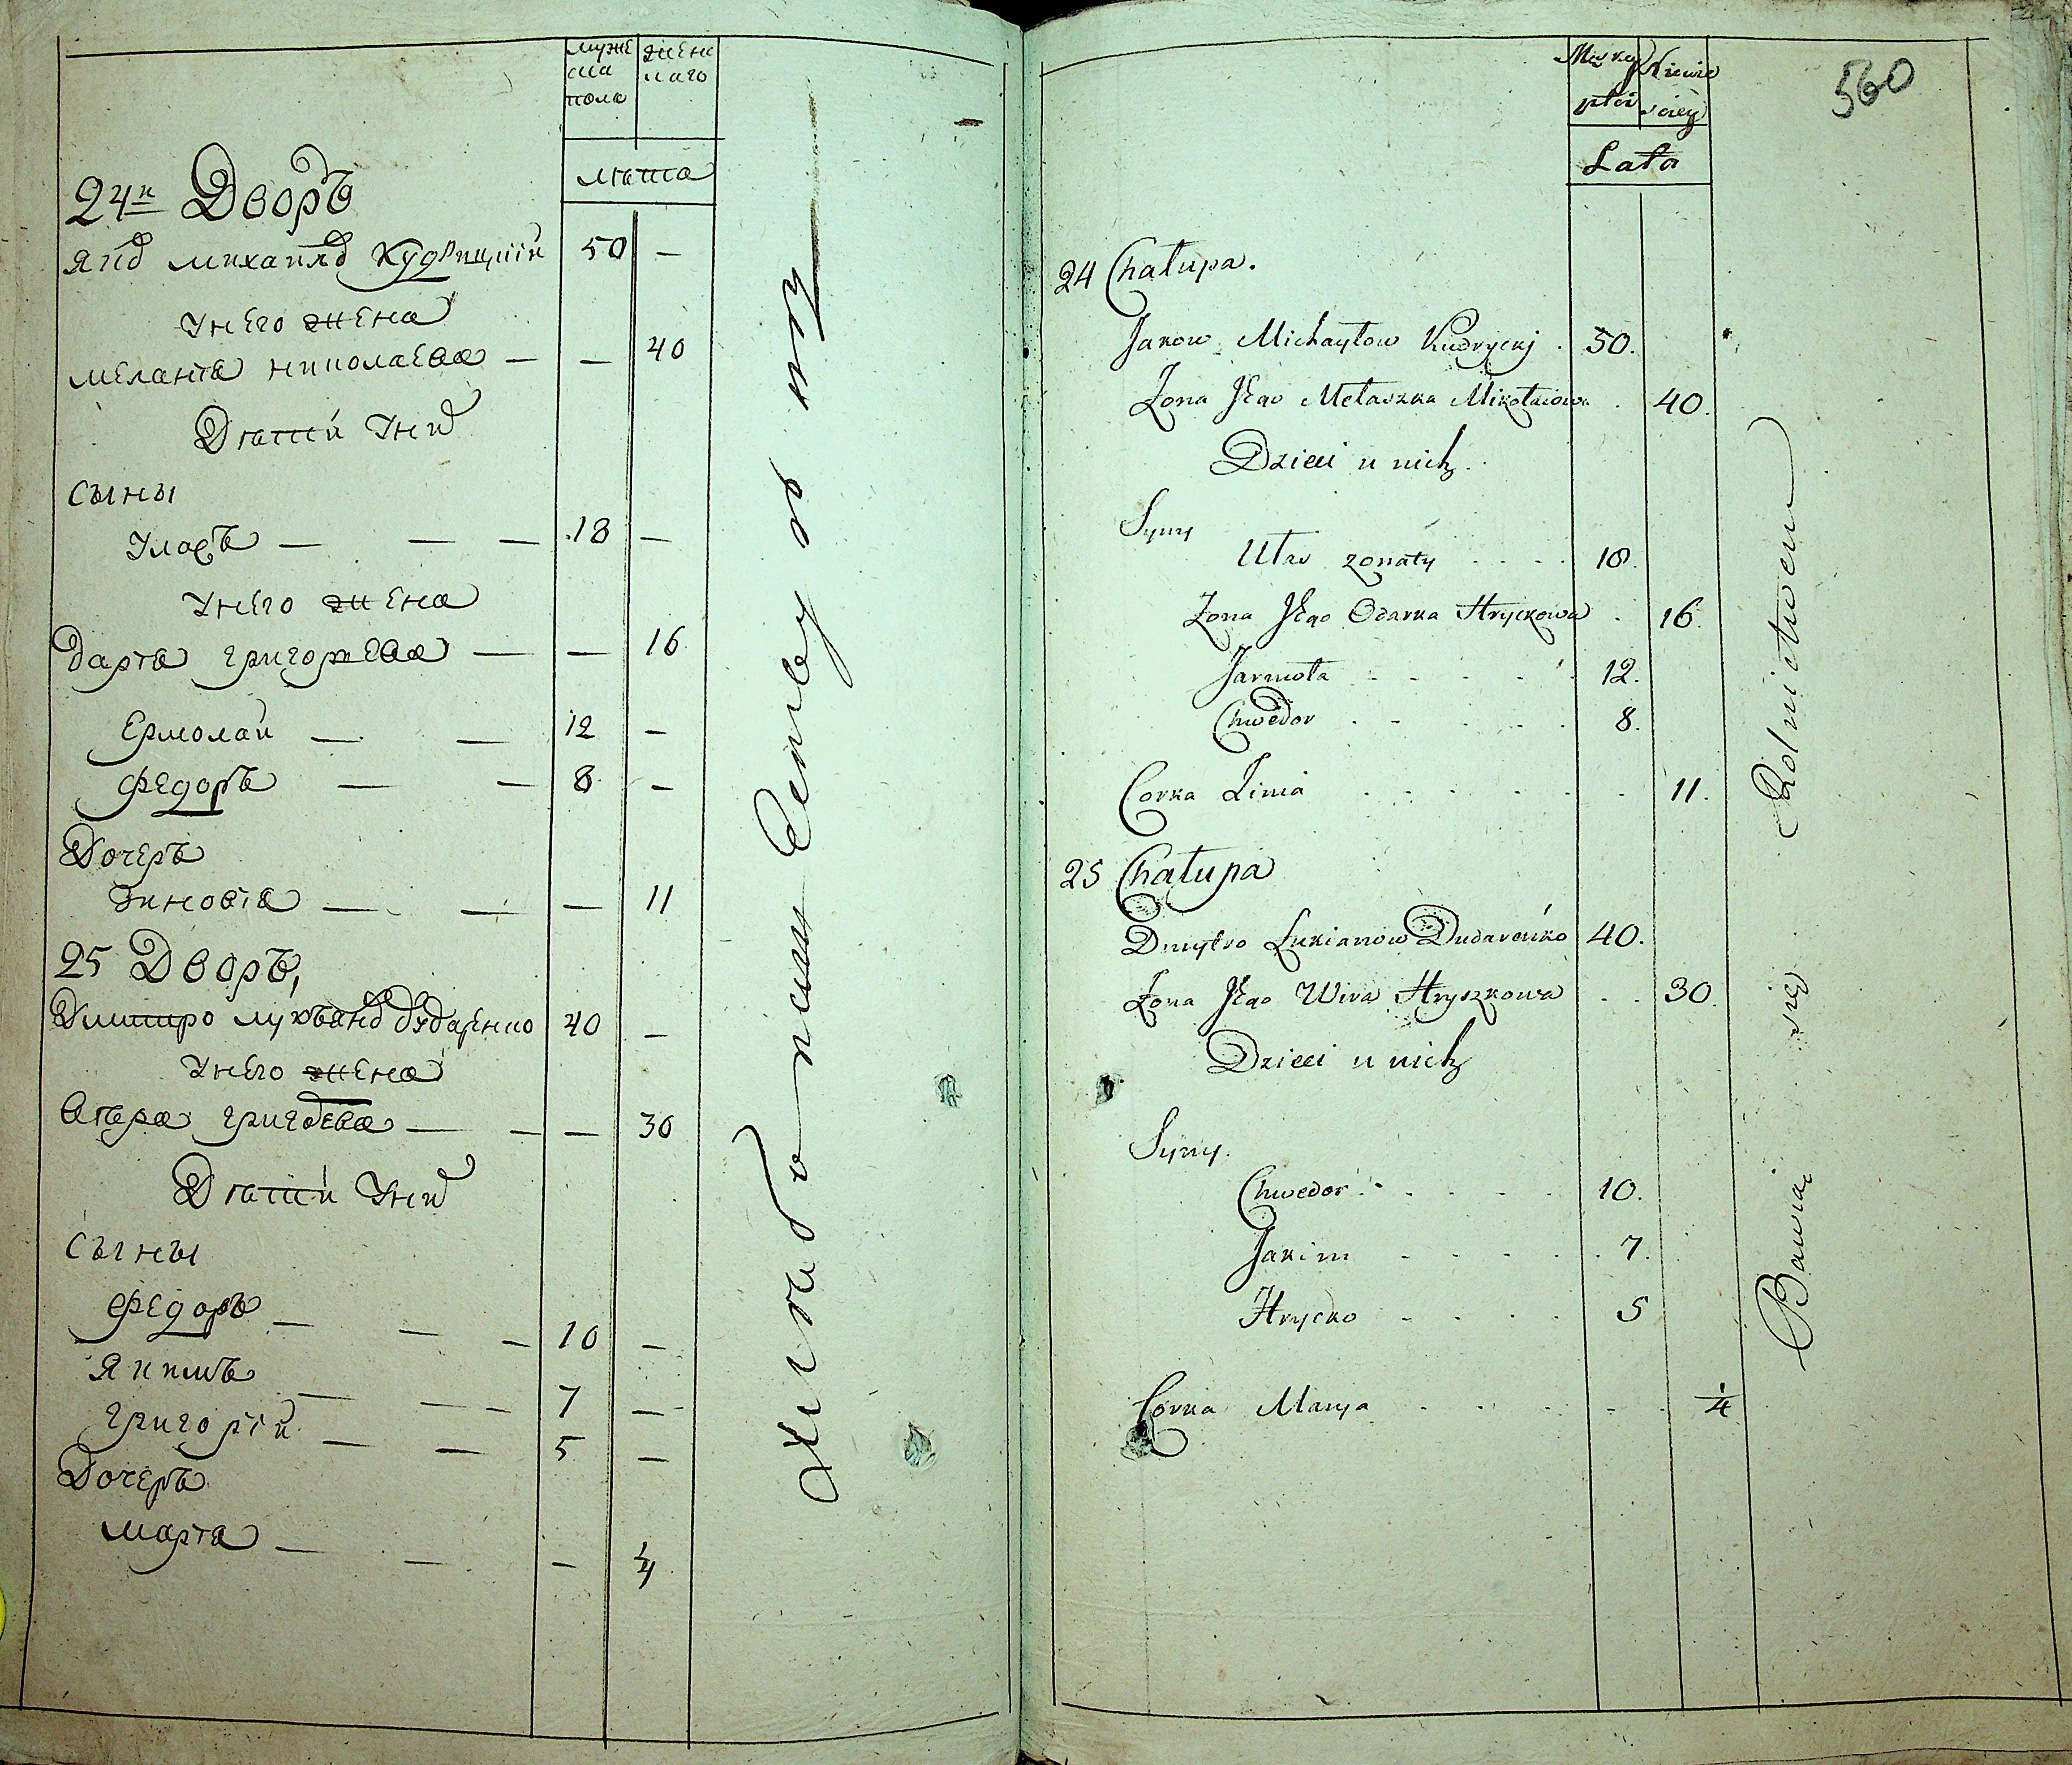 муже
ска
пола
жена
каго
лѣта
24й Дворъ
Яко Михайло Кудрицкій 50 —
У него жена
Меланія Николаева — — 40
Дѣтей у них
Сыны
Уласъ — — — 18 —
У него жена
Дарія Григорьева — — 16
Ермолай — — 12 —
Федоръ — — 8 —
Дочеръ
Зиновія — — — 11
25 Дворъ,
Дмитро Лукьяно Дударенко 40 —
У него жена
Вѣра Григорева — — — 30
Дѣтей у них
Сыны
Федоръ — — — 10 —
Якимъ — — — 7 —
Григорій — — 5 —
Дочеръ
Марія — — — 1/4
560
Męzkey
płci
Niewie
sciey
Lata
24 Chałupa.
Jakow Michayłow Kudryckj . 50.
Zona Jego Mełaszka Mikołaiowa . 40.
Dzieci u nich.
Syny
Ułas zonaty . . . . 18.
Zona Jego Odarka Hryckowa . 16.
Jarmoła . . . . . 12.
Chwedor . . . . . 8.
Corka Zinia . . . . . . 11.
25 Chałupa
Dmytro Łukianow Dudarenko 40.
Zona Jego Wira Hryszkowa . . 30.
Dzieci u nich
Syny.
Chwedor . . . . . 10.
Jakim . . . . . 7.
Hrycko . . . . 5
Corka Marya . . . . . . 1/4
Bawią się Rolnictwem